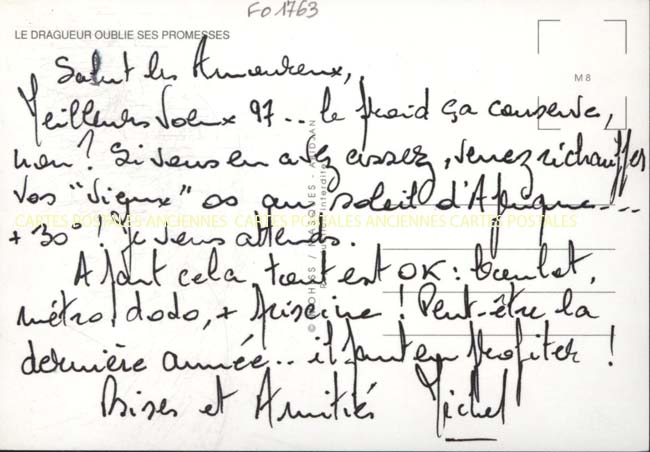 FO1763
LE DRAGUEUR OUBLIE SES PROMESSES
M 8
Salut les Amoureux,
Meilleurs Voeux 97... le froid ça conserve,
non? Si vous en avez assez, venez réchauffer
vos "vieux" os au soleil d'Afrique...
CARTES POSTALES ANCIENNES CARTES POSTALES ANCIENNES CARTES POSTALES
+ 30°. Je vous attends.
A part cela, tout est OK: boulot,
métro, dodo, + piscine! Peut-être la
dernière année.. il faut en profiter!
Bises et Amitiés Michel
MASQUES - ABIDJAN